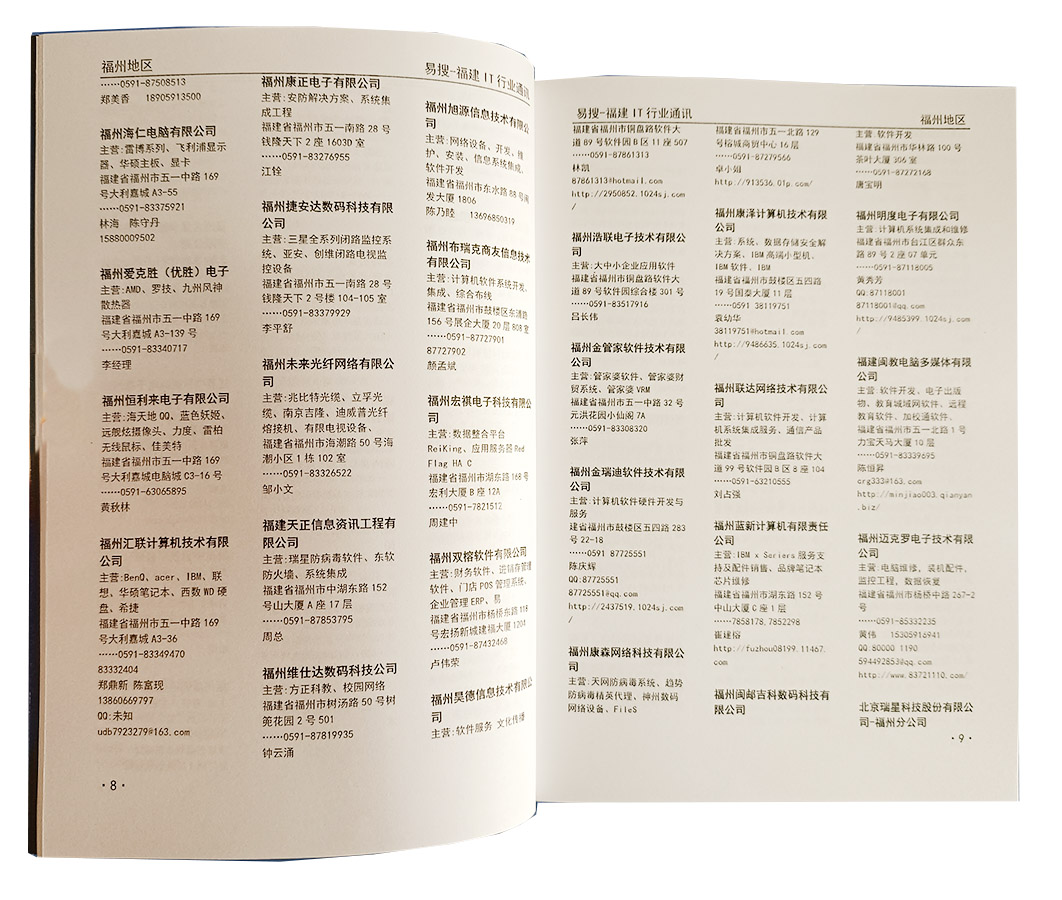 福州地区
……0591-87508513
郑美香 18905913500
福州海仁电脑有限公司
主营:雷博系列、飞利浦显示
器、华硕主板、显卡
福建省福州市五一中路 169
号大利嘉城 A3-55
……0591-83375921
林海 陈守丹
15880009502
福州爱克胜(优胜)电子
主营:AMD、罗技、九州风神
散热器
福建省福州市五一中路 169
号大利嘉城 A3-139 号
……0591-83340717
李经理
福州恒利来电子有限公司
主营:海天地 QQ、蓝色妖姬、
远舰炫摄像头、力度、雷柏
无线鼠标、佳美特
福建省福州市五一中路 169
号大利嘉城电脑城 C3-16 号
……0591-63065895
黄秋林
福州汇联计算机技术有限
公司
主营:BenQ、acer、IBM、联
想、华硕笔记本、西数 WD 硬
盘、希捷
福建省福州市五一中路 169
号大利嘉城 A3-36
……0591-83349470
83332404
郑鼎新 陈富现
13860669797
QQ:未知
udb7923279@163.com
·8·
福州康正电子有限公司
主营:安防解决方案、系统集
成工程
福建省福州市五一南路 28 号
钱隆天下 2 座 1603D 室
……0591-83276955
江铨
福州捷安达数码科技有限
公司
主营:三星全系列闭路监控系
统、亚安、创维闭路电视监
控设备
福建省福州市五一南路 28 号
钱隆天下 2 号楼 104-105 室
……0591-83379929
李平舒
福州未来光纤网络有限公
司
主营:兆比特光缆、立孚光
缆、南京吉隆、迪威普光纤
熔接机、有限电视设备、
福建省福州市海潮路 50 号海
潮小区 1 栋 102 室
……0591-83326522
邹小文
福建天正信息资讯工程有
限公司
主营:瑞星防病毒软件、东软
防火墙、系统集成
福建省福州市中湖东路 152
号山大厦 A 座 17 层
……0591-87853795
周总
福州维仕达数码科技公司
主营:方正科教、校园网络
福建省福州市树汤路 50 号树
兜花园 2 号 501
……0591-87819935
钟云涌
易搜-福建 IT 行业通讯
福州旭源信息技术有限公
司
主营:网络设备、开发、维
护、安装、信息系统集成、
软件开发
福建省福州市东水路 88 号闽
发大厦 1806
陈乃睦 13696850319
福州布瑞克商友信息技术
有限公司
主营:计算机软件系统开发、
集成、综合布线
福建省福州市鼓楼区东涌路
156 号展企大厦 20 层 808 室
……0591-87727901
87727902
颜孟斌
福州宏祺电子科技有限公
司
主营:数据整合平台
ReiKing、应用服务器 Red
Flag HA C
福建省福州市湖东路 168 号
宏利大厦 B 座 12A
……0591-7821512
周建中
福州双榕软件有限公司
主营:财务软件、进销存管理
软件、门店 POS 管理系统、
企业管理 ERP、易
福建省福州市杨桥东路 118
号宏扬新城建福大厦 1204
……0591-87432468
卢伟荣
福州昊德信息技术有限公
司
主营:软件服务 文化传播
易搜-福建 IT 行业通讯
福建省福州市铜盘路软件大
道 89 号软件园 B 区 11 座 507
……0591-87861313
林凯
87861313@hotmail.com
http://2950852.1024sj.com
/
福州浩联电子技术有限公
司
主营:大中小企业应用软件
福建省福州市铜盘路软件大
道 89 号软件园综合楼 301 号
……0591-83517916
吕长伟
福州金管家软件技术有限
公司
主营:管家婆软件、管家婆财
贸系统、管家婆 VRM
福建省福州市五一中路 32 号
元洪花园小仙阁 7A
……0591-83308320
张萍
福州金瑞迪软件技术有限
公司
主营:计算机软件硬件开发与
服务
建省福州市鼓楼区五四路 283
号 22-18
……0591 87725551
陈庆辉
QQ:87725551
87725551@qq.com
http://2437519.1024sj.com
/
福州康森网络科技有限公
司
主营:天网防病毒系统、趋势
防病毒精英代理、神州数码
网络设备、FileS
福建省福州市五一北路 129
号榕城商贸中心 16 层
……0591-87279566
卓小娟
http://913536.01p.com/
福州康泽计算机技术有限
公司
主营:系统、数据存储安全解
决方案、IBM 高端小型机、
IBM 软件、IBM
福建省福州市鼓楼区五四路
19 号国泰大厦 11 层
……0591 38119751
袁幼华
38119751@hotmail.com
http://9486635.1024sj.com
/
福州联达网络技术有限公
司
主营:计算机软件开发、计算
机系统集成服务、通信产品
批发
福建省福州市铜盘路软件大
道 99 号软件园 B 区 8 座 104
……0591-63210555
刘占强
福州蓝新计算机有限责任
公司
主营:IBM x Seriers 服务支
持及配件销售、品牌笔记本
芯片维修
福建省福州市湖东路 152 号
中山大厦 C 座 1 层
……7858178,7852298
崔建榕
http://fuzhou08199.11467.
com
福州闽邮吉科数码科技有
限公司
福州地区
主营:软件开发
福建省福州市华林路 100 号
茶叶大厦 306 室
……0591-87272168
唐宝明
福州明度电子有限公司
主营:计算机系统集成和维修
福建省福州市台江区群众东
路 89 号 2 座 07 单元
……0591-87118005
黄秀芳
QQ:87118001
87118001@qq.com
http://9485399.1024sj.com
/
福建闽教电脑多媒体有限
公司
主营:软件开发、电子出版
物、教育城域网软件、远程
教育软件、加校通软件、
福建省福州市五一北路 1 号
力宝天马大厦 10 层
……0591-83339695
陈恒昇
crg333@163.com
http://minjiao003.qianyan
.biz/
福州迈克罗电子技术有限
公司
主营:电脑维修、装机配件、
监控工程、数据恢复
福建省福州市杨桥中路 267-2
号
……0591-85332235
黄伟 15305916941
QQ:80000 1190
594492853@qq.com
http://www.83721110.com/
北京瑞星科技股份有限公
司-福州分公司
·9·